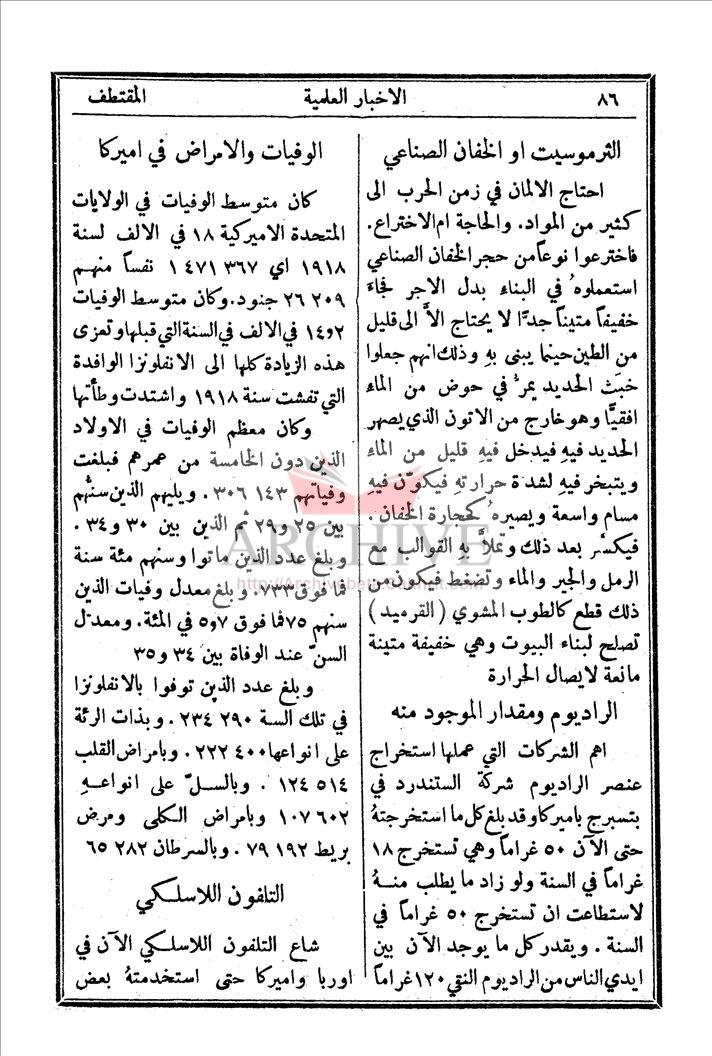 ٨٦
الاخبار العلمية
المقتطف
الثرموسيت او الخفان الصناعي
احتاج الالمان في زمن الحرب الى
كثير من المواد. والحاجة ام الاختراع.
فاخترعوا نوعاً من حجر الخفان الصناعي
استعملوهُ في البناء بدل الاجر فجاءَ
خفيفاً متيناً جدًّا لا يحتاج الاَّ الى قليل
من الطين حينما يبنى بهِ وذلك انهم جعلوا
خبَث الحديد يمرُّ في حوض من الماء
افقيًّا وهو خارج من الاتون الذي يصهر
الحديد فيهِ فيدخل فيهِ قليل من الماء
ويتبخر فيهِ لشدة حرارتهِ فيكوّن فيهِ
مسام واسعة ويصيرهُ كحجارة الخفان.
فيكسَّر بعد ذلك وتملأُ بهِ القوالب مع
الرمل والجير والماء وتضغط فيكون من
ذلك قطع كالطوب المشوي (القرميد)
تصلح لبناء البيوت وهي خفيفة متينة
مانعة لايصال الحرارة
الراديوم ومقدار الموجود منه
اهم الشركات التي عملها استخراج
عنصر الراديوم شركة الستندرد في
بتسبرج باميركا وقد بلغ كل ما استخرجتهُ
حتى الآن ٥٠ غراماً وهي تستخرج ١٨
غراماً في السنة ولو زاد ما يطلب منهُ
لاستطاعت ان تستخرج ٥٠ غراماً في
السنة. ويقدر كل ما يوجد الآن بين
ايدي الناس من الراديوم النقي ١٢٠ غراماً
الوفيات والامراض في اميركا
كان متوسط الوفيات في الولايات
المتحدة الاميركية ١٨ في الالف لسنة
١٩١٨ اي ٣٦٧ ٤٧١ ١ نفساً منهم
٢٠٩ ٢٦ جنود. وكان متوسط الوفيات
٢و١٤ في الالف في السنة التي قبلها وتعزى
هذه الزيادة كلها الى الانفلونزا الوافدة
التي تفشت سنة ١٩١٨ واشتدت وطأتها
وكان معظم الوفيات في الاولاد
الذين دون الخامسة من عمرهم فبلغت
وفياتهم ١٤٣ ٣٠٦. ويليهم الذين سنُّهم
بين ٢٥ و٢٩ ثم الذين بين ٣٠ و٣٤.
وبلغ عدد الذين ماتوا وسنهم مئة سنة
فما فوق ٧٣٣. وبلغ معدل وفيات الذين
سنهم ٧٥ فما فوق ٧و٥ في المئة. ومعدل
السنّ عند الوفاة بين ٣٤ و٣٥
وبلغ عدد الذين توفوا بالانفلونزا
في تلك السنة ٢٩٠ ٢٣٤. وبذات الرئة
على انواعها ٤٠٠ ٢٢٢. وبامراض القلب
٥١٤ ١٢٤. وبالسلّ على انواعهِ
٦٠٢ ١٠٧ وبامراض الكلى ومرض
بريط ١٩٢ ٧٩. وبالسرطان ٢٨٢ ٦٥
التلفون اللاسلكي
شاع التلفون اللاسلكي الآن في
اوربا واميركا حتى استخدمتهُ بعض
ARCHIVE